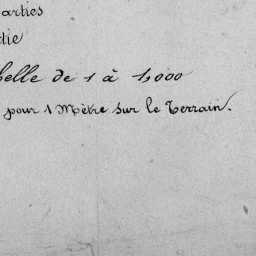 arties
tie
elle de 1 à 1,000
pour 1 Mètre sur le Terrain.